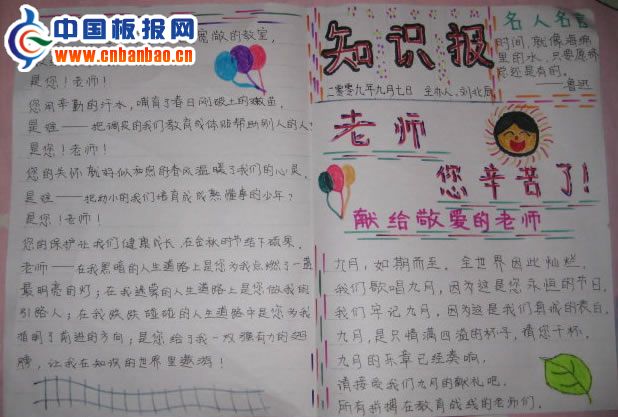 中国板报网
www.cnbanbao.cn
宽敞的教室,
是您!老师!
您用辛勤的汗水,哺育了春日刚破土的嫩苗,
是谁——把调皮的我们教育成体贴帮助别人的人
是您!老师!
您的关怀就好似和煦的春风温暖了我们的心灵。
是谁——把幼小的我们培育成成熟懂事的少年?
是您!老师!
您的保护让我们健康成长,在金秋时节结下硕果。
老师——在我黑暗的人生道路上是您为我点燃了一盏
最明亮的灯;在我迷雾的人生道路上是您做我的
引路人;在我跌跌碰碰的人生道路中是您为我
指明了前进的方向;是您给了我一双强有力的翅
膀,让我在知识的世界里遨游!
知识报
二零零九年九月七日 主办人:刘北辰
名人名言
时间,就像海绵
里的水,只要愿挤
总还是有的。
——鲁迅
老师
您辛苦了!
献给敬爱的老师
九月,如期而至。全世界因此灿烂。
我们歌唱九月,因为这是您永恒的节日。
我们牢记九月,因为这是我们真诚的表白。
九月,是只情满四溢的杯子,请您干杯。
九月的乐章已经奏响,
请接受我们九月的献礼吧。
所有耕耘在教育战线的老师们。